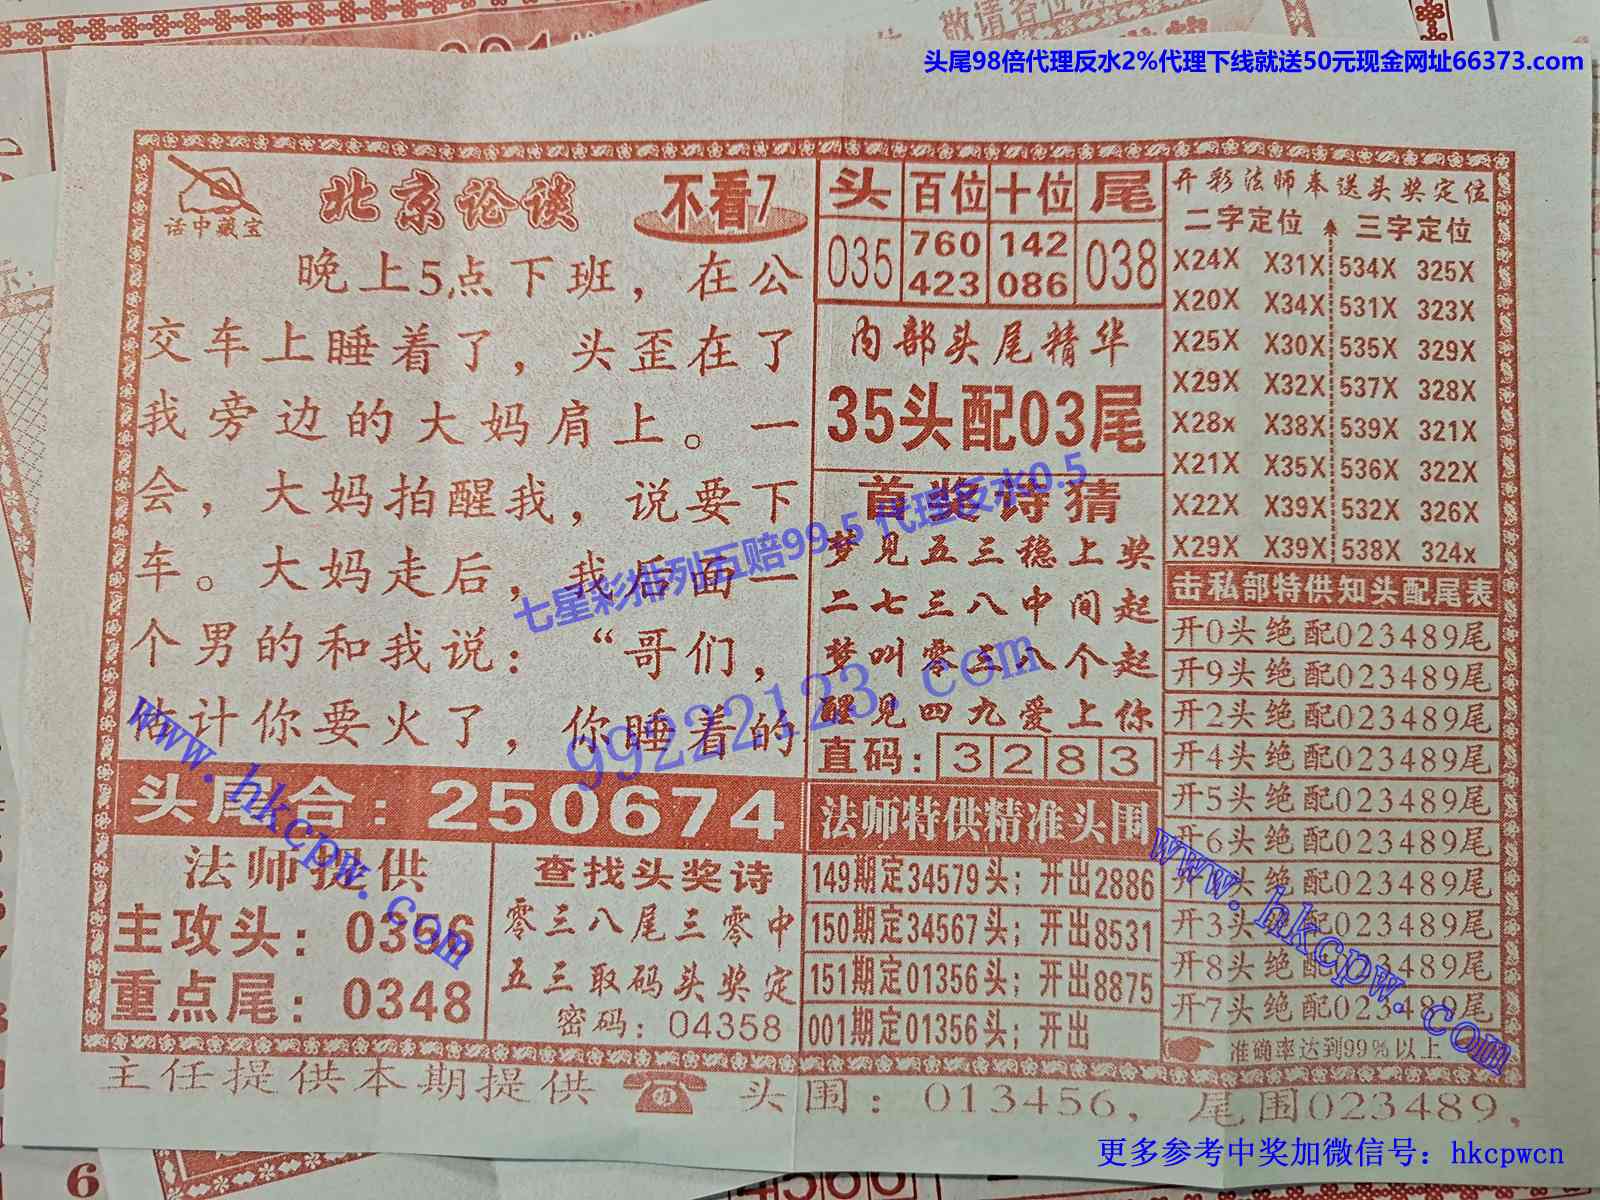 敬请各位
头尾98倍代理反水2%代理下线就送50元现金网址66373.com
话中藏宝
北京论谈
不看7
晚上5点下班，在公
交车上睡着了，头歪在了
我旁边的大妈肩上。一
会，大妈拍醒我，说要下
车。大妈走后，我后面一
个男的和我说：“哥们，
估计你要火了，你睡着的
头尾合：250674
法师提供
主攻头：0356
重点尾：0348
查找头奖诗
零三八尾三零中
五三取码头奖定
密码：04358
头 百位 十位 尾
035 760 142 038
423 086
内部头尾精华
35头配03尾
首奖诗猜
梦见五三稳上奖
二七三八中间起
梦叫零三八个起
醒见四九爱上你
直码：3283
法师特供精准头围
149期定34579头；开出2886
150期定34567头；开出8531
151期定01356头；开出8875
001期定01356头；开出
开彩法师奉送头奖定位
二字定位 三字定位
X24X X31X 534X 325X
X20X X34X 531X 323X
X25X X30X 535X 329X
X29X X32X 537X 328X
X28x X38X 539X 321X
X21X X35X 536X 322X
X22X X39X 532X 326X
X29X X39X 538X 324x
击私部特供知头配尾表
开0头绝配023489尾
开9头绝配023489尾
开2头绝配023489尾
开4头绝配023489尾
开5头绝配023489尾
开6头绝配023489尾
头绝配023489尾
开3头绝配023489尾
开8头绝配023489尾
开7头绝配023489尾
准确率达到99%以上
主任提供本期提供 头围：013456，尾围023489，
七星彩排列五赔99.5 代理反水0.5
99222123.com
www.hkcpw.com
www.hkcpw.com
更多参考中奖加微信号：hkcpwcn
6